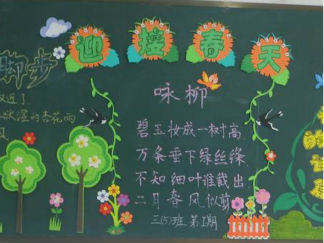 迎接春天
脚步
近了
杏花雨
风
咏柳
碧玉妆成一树高
万条垂下绿丝绦
不知细叶谁裁出
二月春风似剪
三(5)班 第1期